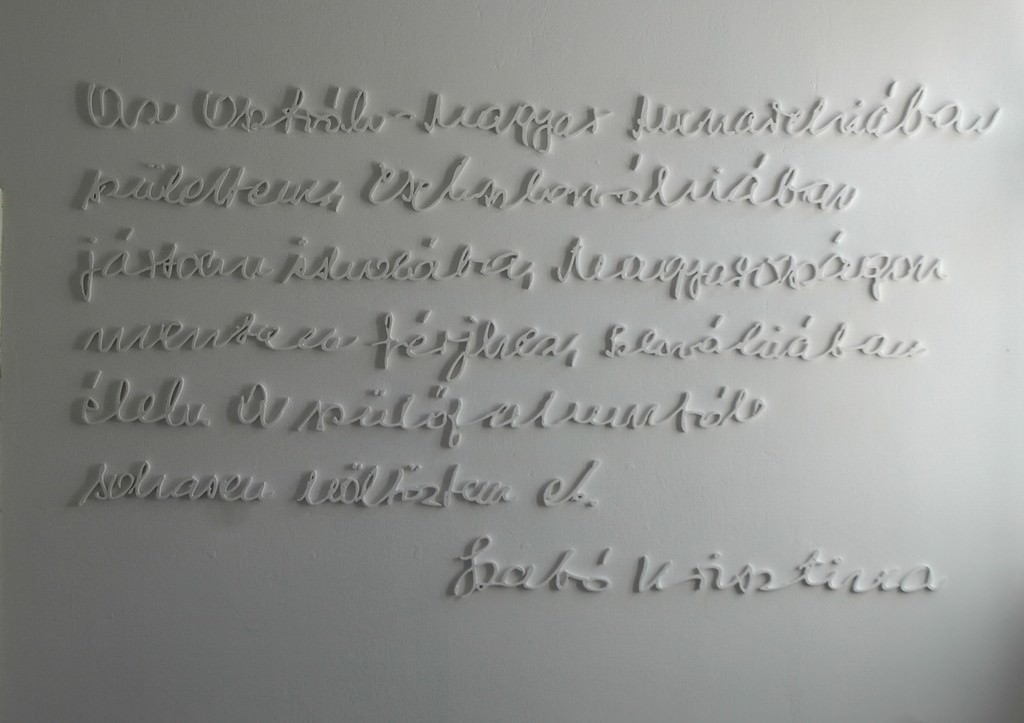 Az Osztrák-Magyar Monarchiában
születtem, Csehszlovákiában
jártam iskolába, Magyarországon
mentem férjhez, Szlovákiában
élek. A szülőfalumtól
sohasem költöztem el.
Szabó Krisztina